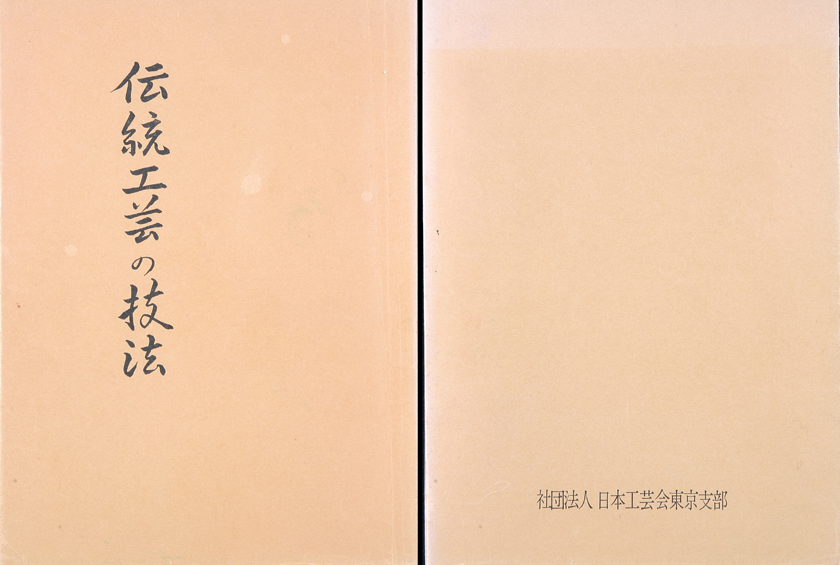 伝統工芸の技法
社団法人 日本工芸会東京支部